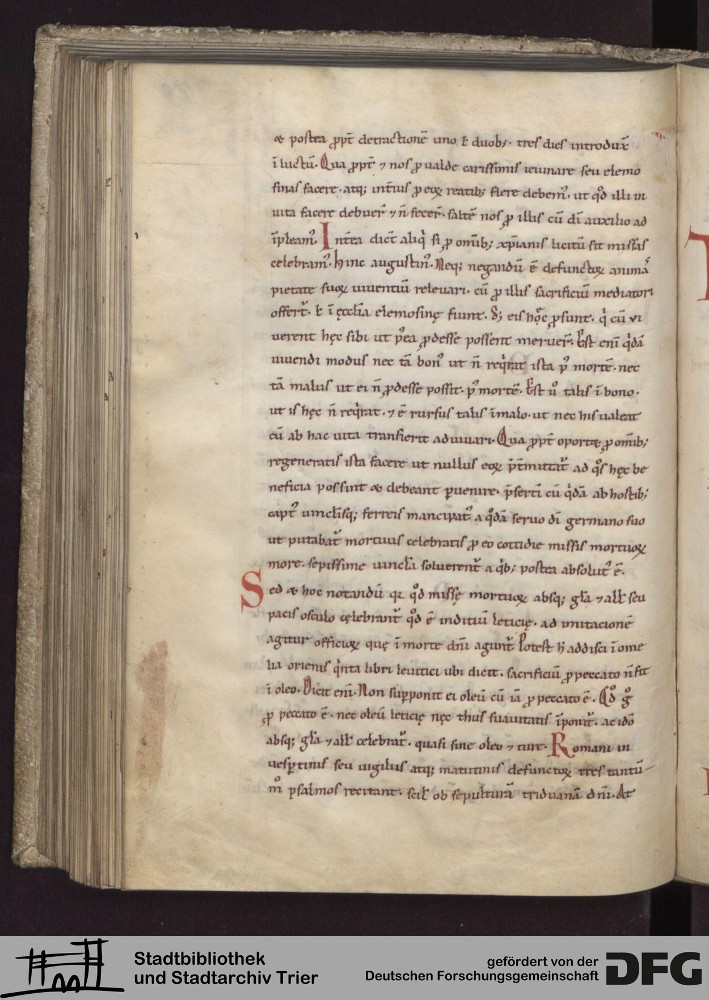 & postea ꝓpt̄ detractionē uno ł duob; tres dies introduxͬ
ī luctū. Qua ꝓpt̄ ⁊ nos ꝓ ualde carissimis ieiunare seu elemo
sinas facere. atq; int̄ius ꝓ eoꝝ reatib; flere debem᷒. ut qd̄ illi in
uita facere debuer̄ ⁊ n̄ fecer̄. saltē nos ꝓ illis cū di auxilio ad
īpleam᷒. Int̄ea dicit̄ aliq̇ si ꝓ omīb; xp̄ianis licitū sit missas
celebram᷒. Hinc augustin᷒. Neq; negandū ē defunctoꝝ animā
pietate suoꝝ uiuentiū releuari. cū ꝓ illis sacrificiū mediatori
offert᷑. ł ī ęcclīa elemosinę fiunt. S; eis hoc ꝓsunt. q̇ cū ui
uerent hęc sibi ut p᷒ea ꝓdesse possent meruer̄. Est enī q̇dā
uiuendi modus nec tā bon᷒ ut n̄ reqͥrat ista p᷒ mortē. nec
tā malus ut ei n̄ ꝓdesse possit. p᷒ mortē. Est u̇ talis ī bono.
ut is hęc n̄ reqͥrat. ⁊ ē rursus talis ī malo. ut nec his ualeat
cū ab hac uita transierit adiuuari. Qua ꝓpt̄ oportet ꝓ omīb;
regeneratis ista facere ut nullus eoꝝ p̄t̄mittat᷑ ad q̊s hęc be
neficia possint & debeant ꝑuenire. p̄serti cū q̇dā ab hostib;
capt᷒ uinclisq; ferreis mancipat᷒ a q̇dā seruo di germano suo
ut putabat᷑ mortuus celebratis ꝓ eo cottidie missis mortuoꝝ
more. sepissime uincla soluerent᷑ a q̇b; postea absolut᷒ ē.
Sed & hoc notandū qꝛ qd̄ missę mortuoꝝ absq; glā ⁊ allł seu
pacis osculo cęlebrant᷑ qd̄ ē inditiū leticię. ad imitacionē
agitur officioꝝ quę ī morte dn̄i agunt᷑. Potest h̄ addisci ī ome
lia orienis qͥnta libri leuitici ubi dicit. sacrificiū ꝓ peccato n̄ fit
ī oleo. Dicit enī. Non supponit ei oleū cū iā ꝓ peccato ē. Qd̄ g̊
ꝓ peccato ē. nec oleū leticię nęc thus suauitatis īponit᷑. ac idō
absq; glā ⁊ allł celebrat᷑. quasi sine oleo ⁊ ture. Romani in
uesꝑtinis seu uigiliis atq; matutinis defunctoꝝ tres tantū
m̊ psalmos recitant. scił ob sepulturā triduanā dn̄i. At
Stadtbibliothek
und Stadtarchiv Trier
gefördert von der
Deutschen Forschungsgemeinschaft
DFG